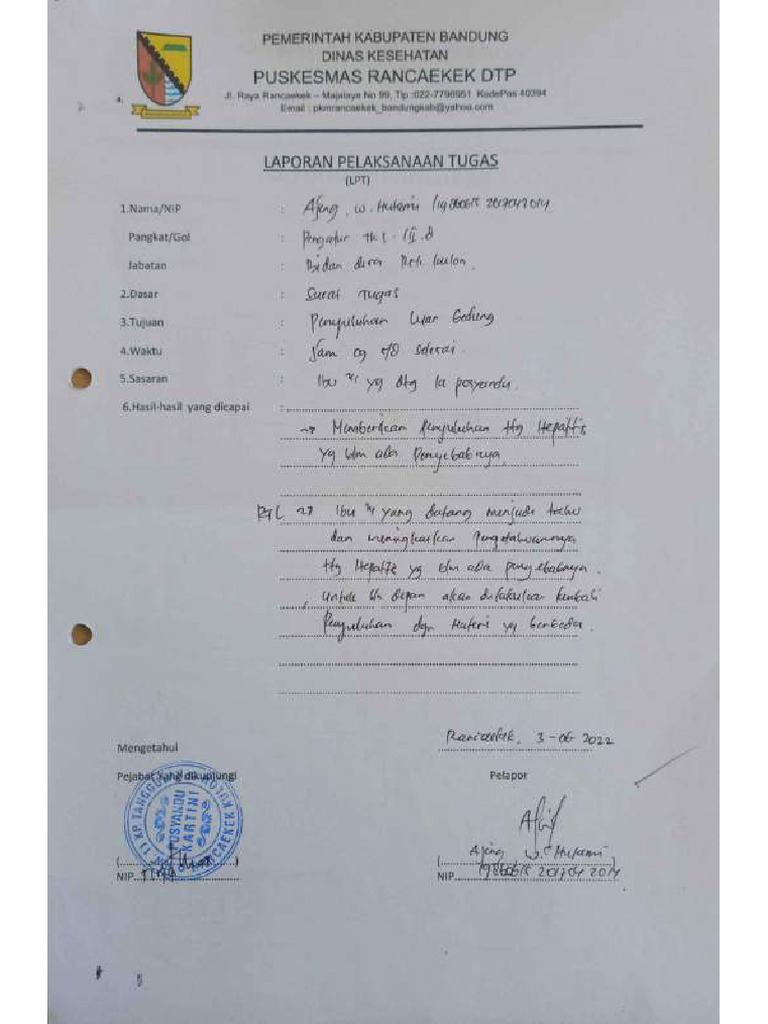 PEMERINTAH KABUPATEN BANDUNG
DINAS KESEHATAN
PUSKESMAS RANCAEKEK DTP
4.
Jl. Raya Rancaekek – Majalaya No 99, Tlp :022-7796951 KodePos 40394
Email : pkmrancaekek_bandungkab@yahoo.com
LAPORAN PELAKSANAAN TUGAS
(LPT)
1.Nama/NIP : Ajeng. W. Hutami
Pangkat/Gol : Pengatur Tk I - II.d
Jabatan : Bidan desa
2.Dasar : Surat Tugas
3.Tujuan : Penyuluhan Luar Gedung
4.Waktu : Jam 09 s/d selesai.
5.Sasaran : Ibu yg dtg ke posyandu.
6.Hasil-hasil yang dicapai :
→ Memberikan Penyuluhan ttg Hepatitis
yg blm ada Penyebabnya
RTL → Ibu yang datang menjadi tahu
dan meningkatkan Pengetahuannya
ttg Hepatitis yg blm ada penyebabnya.
untuk bln depan akan dilakukan kembali
Penyuluhan dgn Materi yg berbeda.
Rancaekek, 3-06-2022
Mengetahui
Pejabat Yang dikunjungi
Pelapor
POSYANDU
KARTINI
RANCAEKEK KULON
Ajeng W. Hutami
NIP.
NIP.